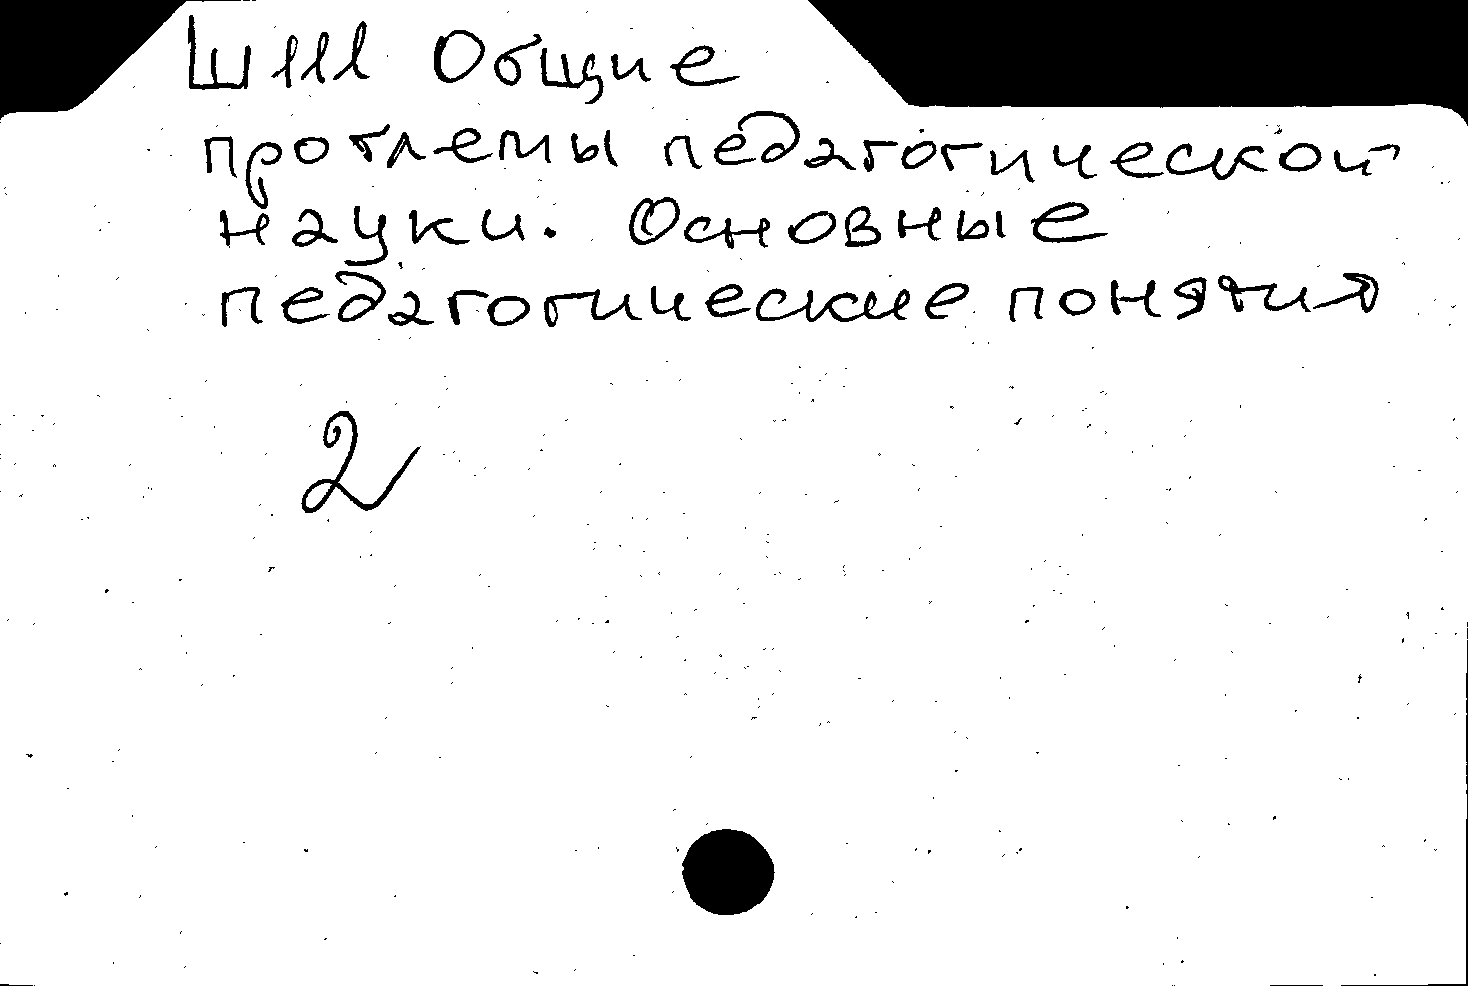 Ш111 Общие
проблемы педагогической
науки. Основные
педагогические понятия
2